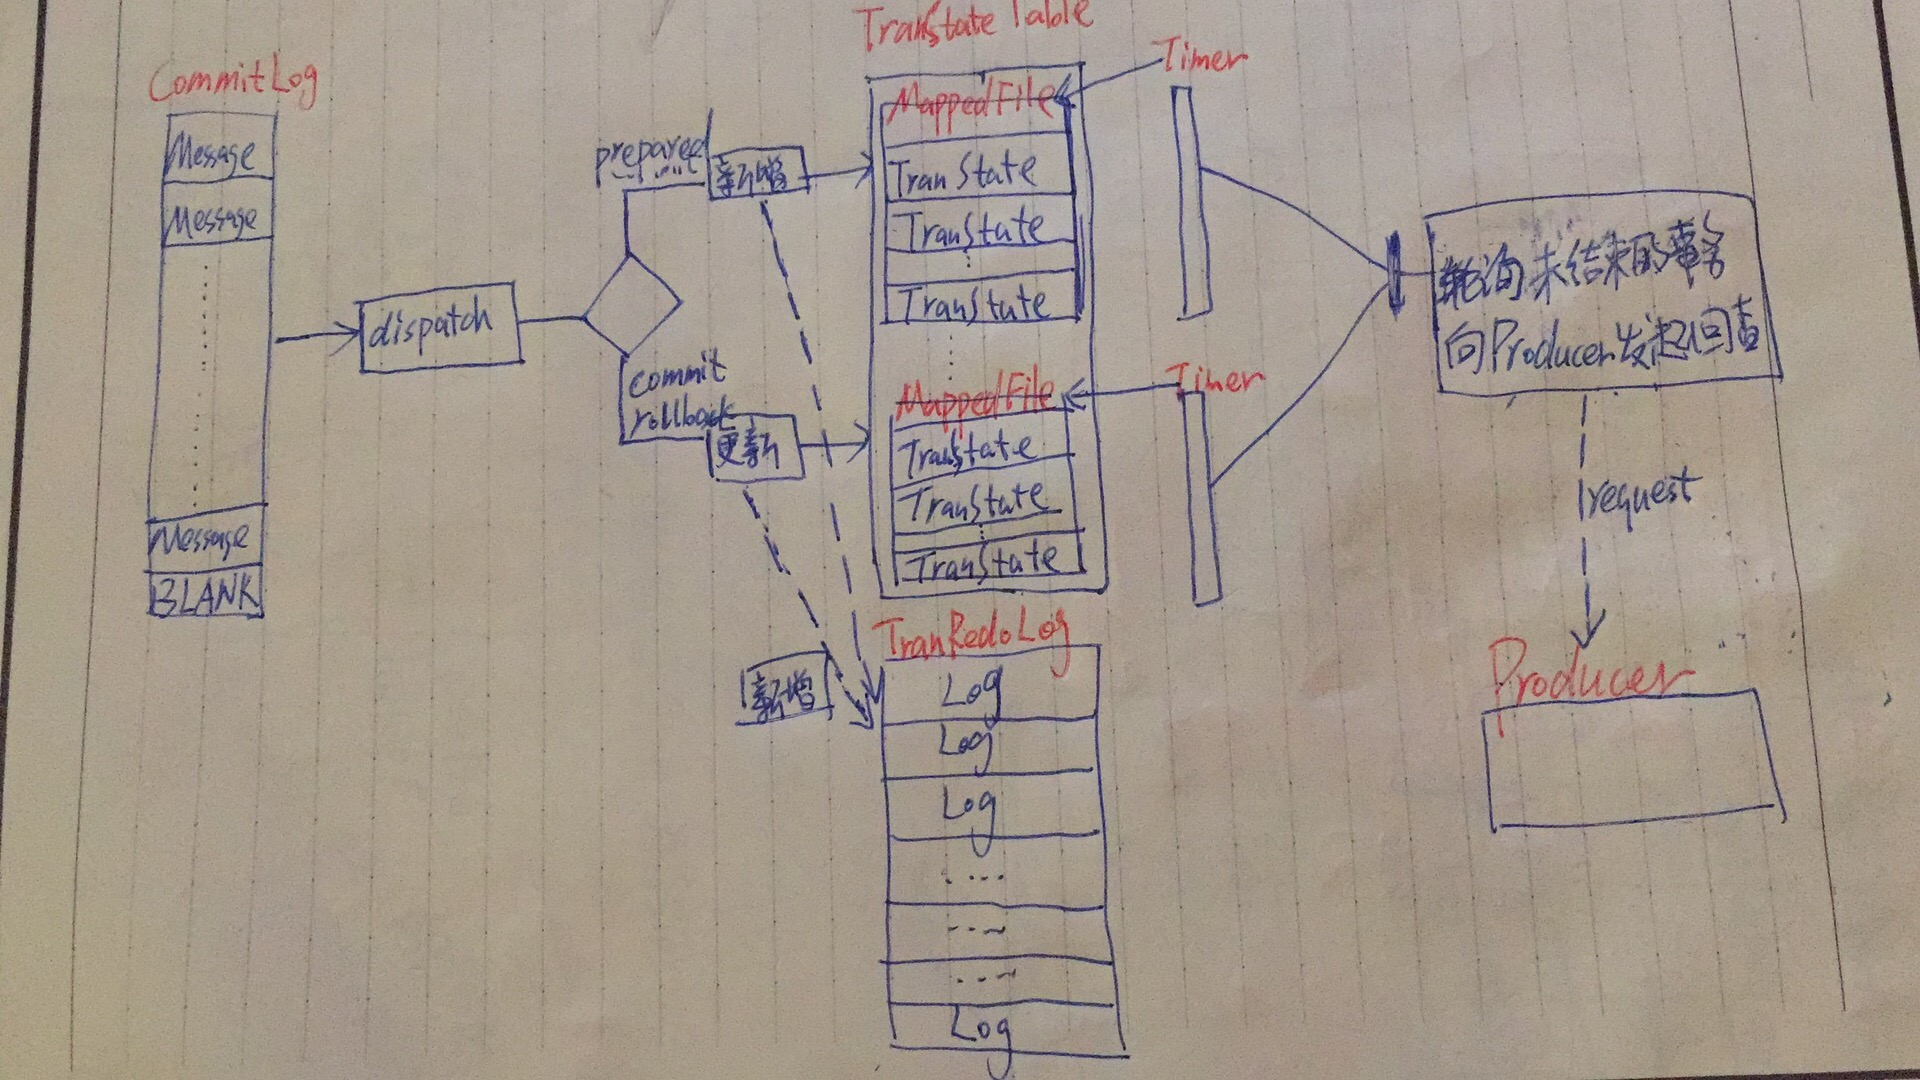 CommitLog
Message
Message
Message
BLANK
dispatch
prepared
新增
commit
rollback
更新
新增
TranStateTable
MappedFile
TranState
TranState
TranState
MappedFile
TranState
TranState
TranState
Timer
Timer
TranRedoLog
Log
Log
Log
Log
轮询未结束的事务
向Producer发起回查
request
Producer